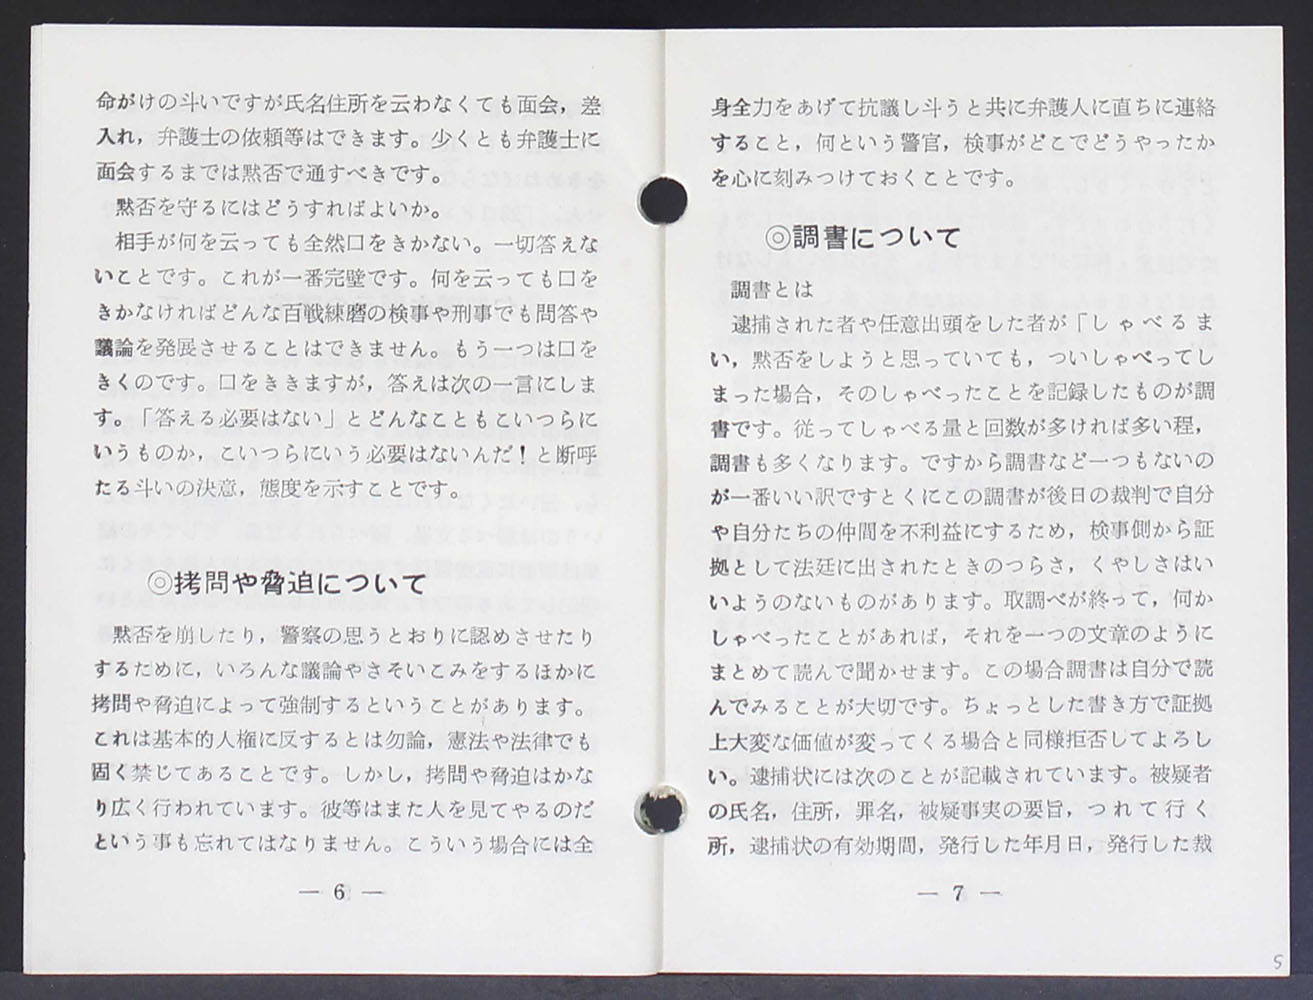 命がけの斗いですが氏名住所を云わなくても面会，差
入れ，弁護士の依頼等はできます。少くとも弁護士に
面会するまでは黙否で通すべきです。
黙否を守るにはどうすればよいか。
相手が何を云っても全然口をきかない。一切答えな
いことです。これが一番完壁です。何を云っても口を
きかなければどんな百戦練磨の検事や刑事でも問答や
議論を発展させることはできません。もう一つは口を
きくのです。口をききますが，答えは次の一言にしま
す。「答える必要はない」とどんなこともこいつらに
いうものか，こいつらにいう必要はないんだ！と断呼
たる斗いの決意，態度を示すことです。
◎拷問や脅迫について
黙否を崩したり，警察の思うとおりに認めさせたり
するために，いろんな議論やさそいこみをするほかに
拷問や脅迫によって強制するということがあります。
これは基本的人権に反するとは勿論，憲法や法律でも
固く禁じてあることです。しかし，拷問や脅迫はかな
り広く行われています。彼等はまた人を見てやるのだ
という事も忘れてはなりません。こういう場合には全
— 6 —
身全力をあげて抗議し斗うと共に弁護人に直ちに連絡
すること，何という警官，検事がどこでどうやったか
を心に刻みつけておくことです。
◎調書について
調書とは
逮捕された者や任意出頭をした者が「しゃべるま
い，黙否をしようと思っていても，ついしゃべってし
まった場合，そのしゃべったことを記録したものが調
書です。従ってしゃべる量と回数が多ければ多い程，
調書も多くなります。ですから調書など一つもないの
が一番いい訳ですとくにこの調書が後日の裁判で自分
や自分たちの仲間を不利益にするため，検事側から証
拠として法廷に出されたときのつらさ，くやしさはい
いようのないものがあります。取調べが終って，何か
しゃべったことがあれば，それを一つの文章のように
まとめて読んで聞かせます。この場合調書は自分で読
んでみることが大切です。ちょっとした書き方で証拠
上大変な価値が変ってくる場合と同様拒否してよろし
い。逮捕状には次のことが記載されています。被疑者
の氏名，住所，罪名，被疑事実の要旨，つれて行く
所，逮捕状の有効期間，発行した年月日，発行した裁
— 7 —
5